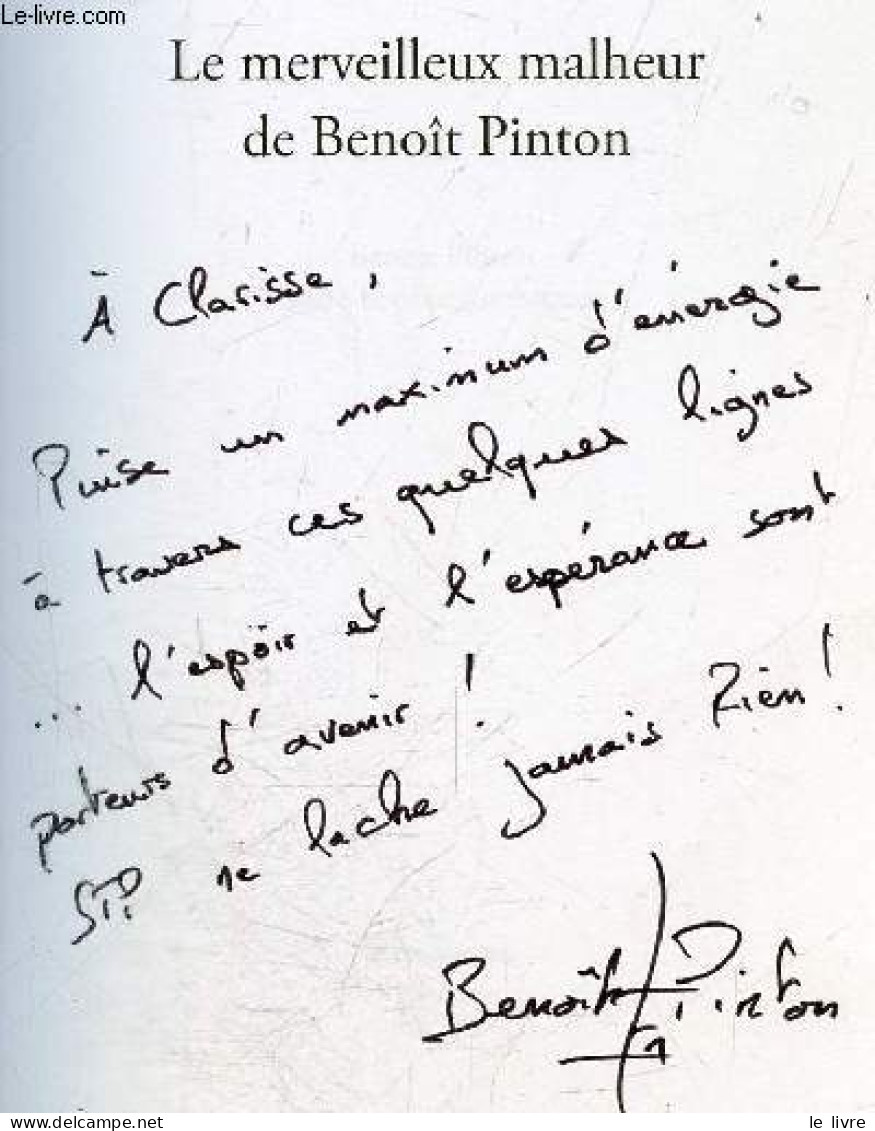 Le-livre.com
Le merveilleux malheur
de Benoît Pinton
À Clarisse,
Puise un maximum d'énergie
à travers ces quelques lignes
... l'espoir et l'espérance sont
porteurs d'avenir !
STP ne lache jamais Rien !
Benoît Pinton
le livre